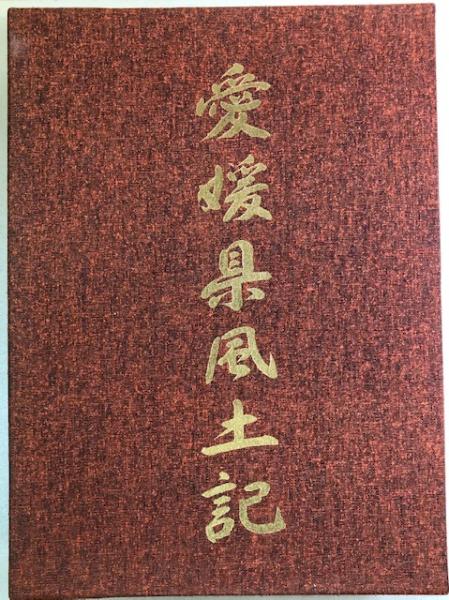 愛媛県風土記